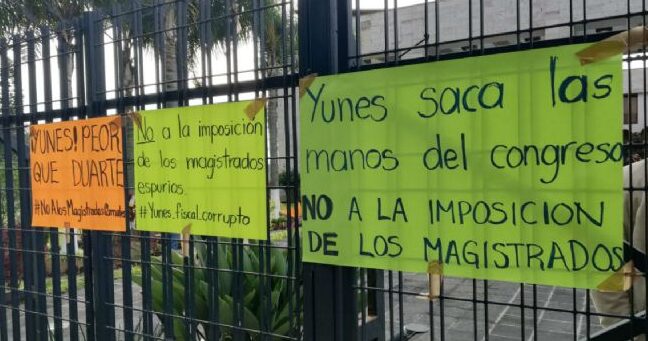 ¡YUNES! PEOR
QUE DUARTE
#NoAlosMagistrados
No a la imposición
de los magistrados
espurios.
#Yunes.fiscal.corrupto
Yunes saca las
manos del congreso
NO A LA IMPOSICION
DE LOS MAGISTRADOS